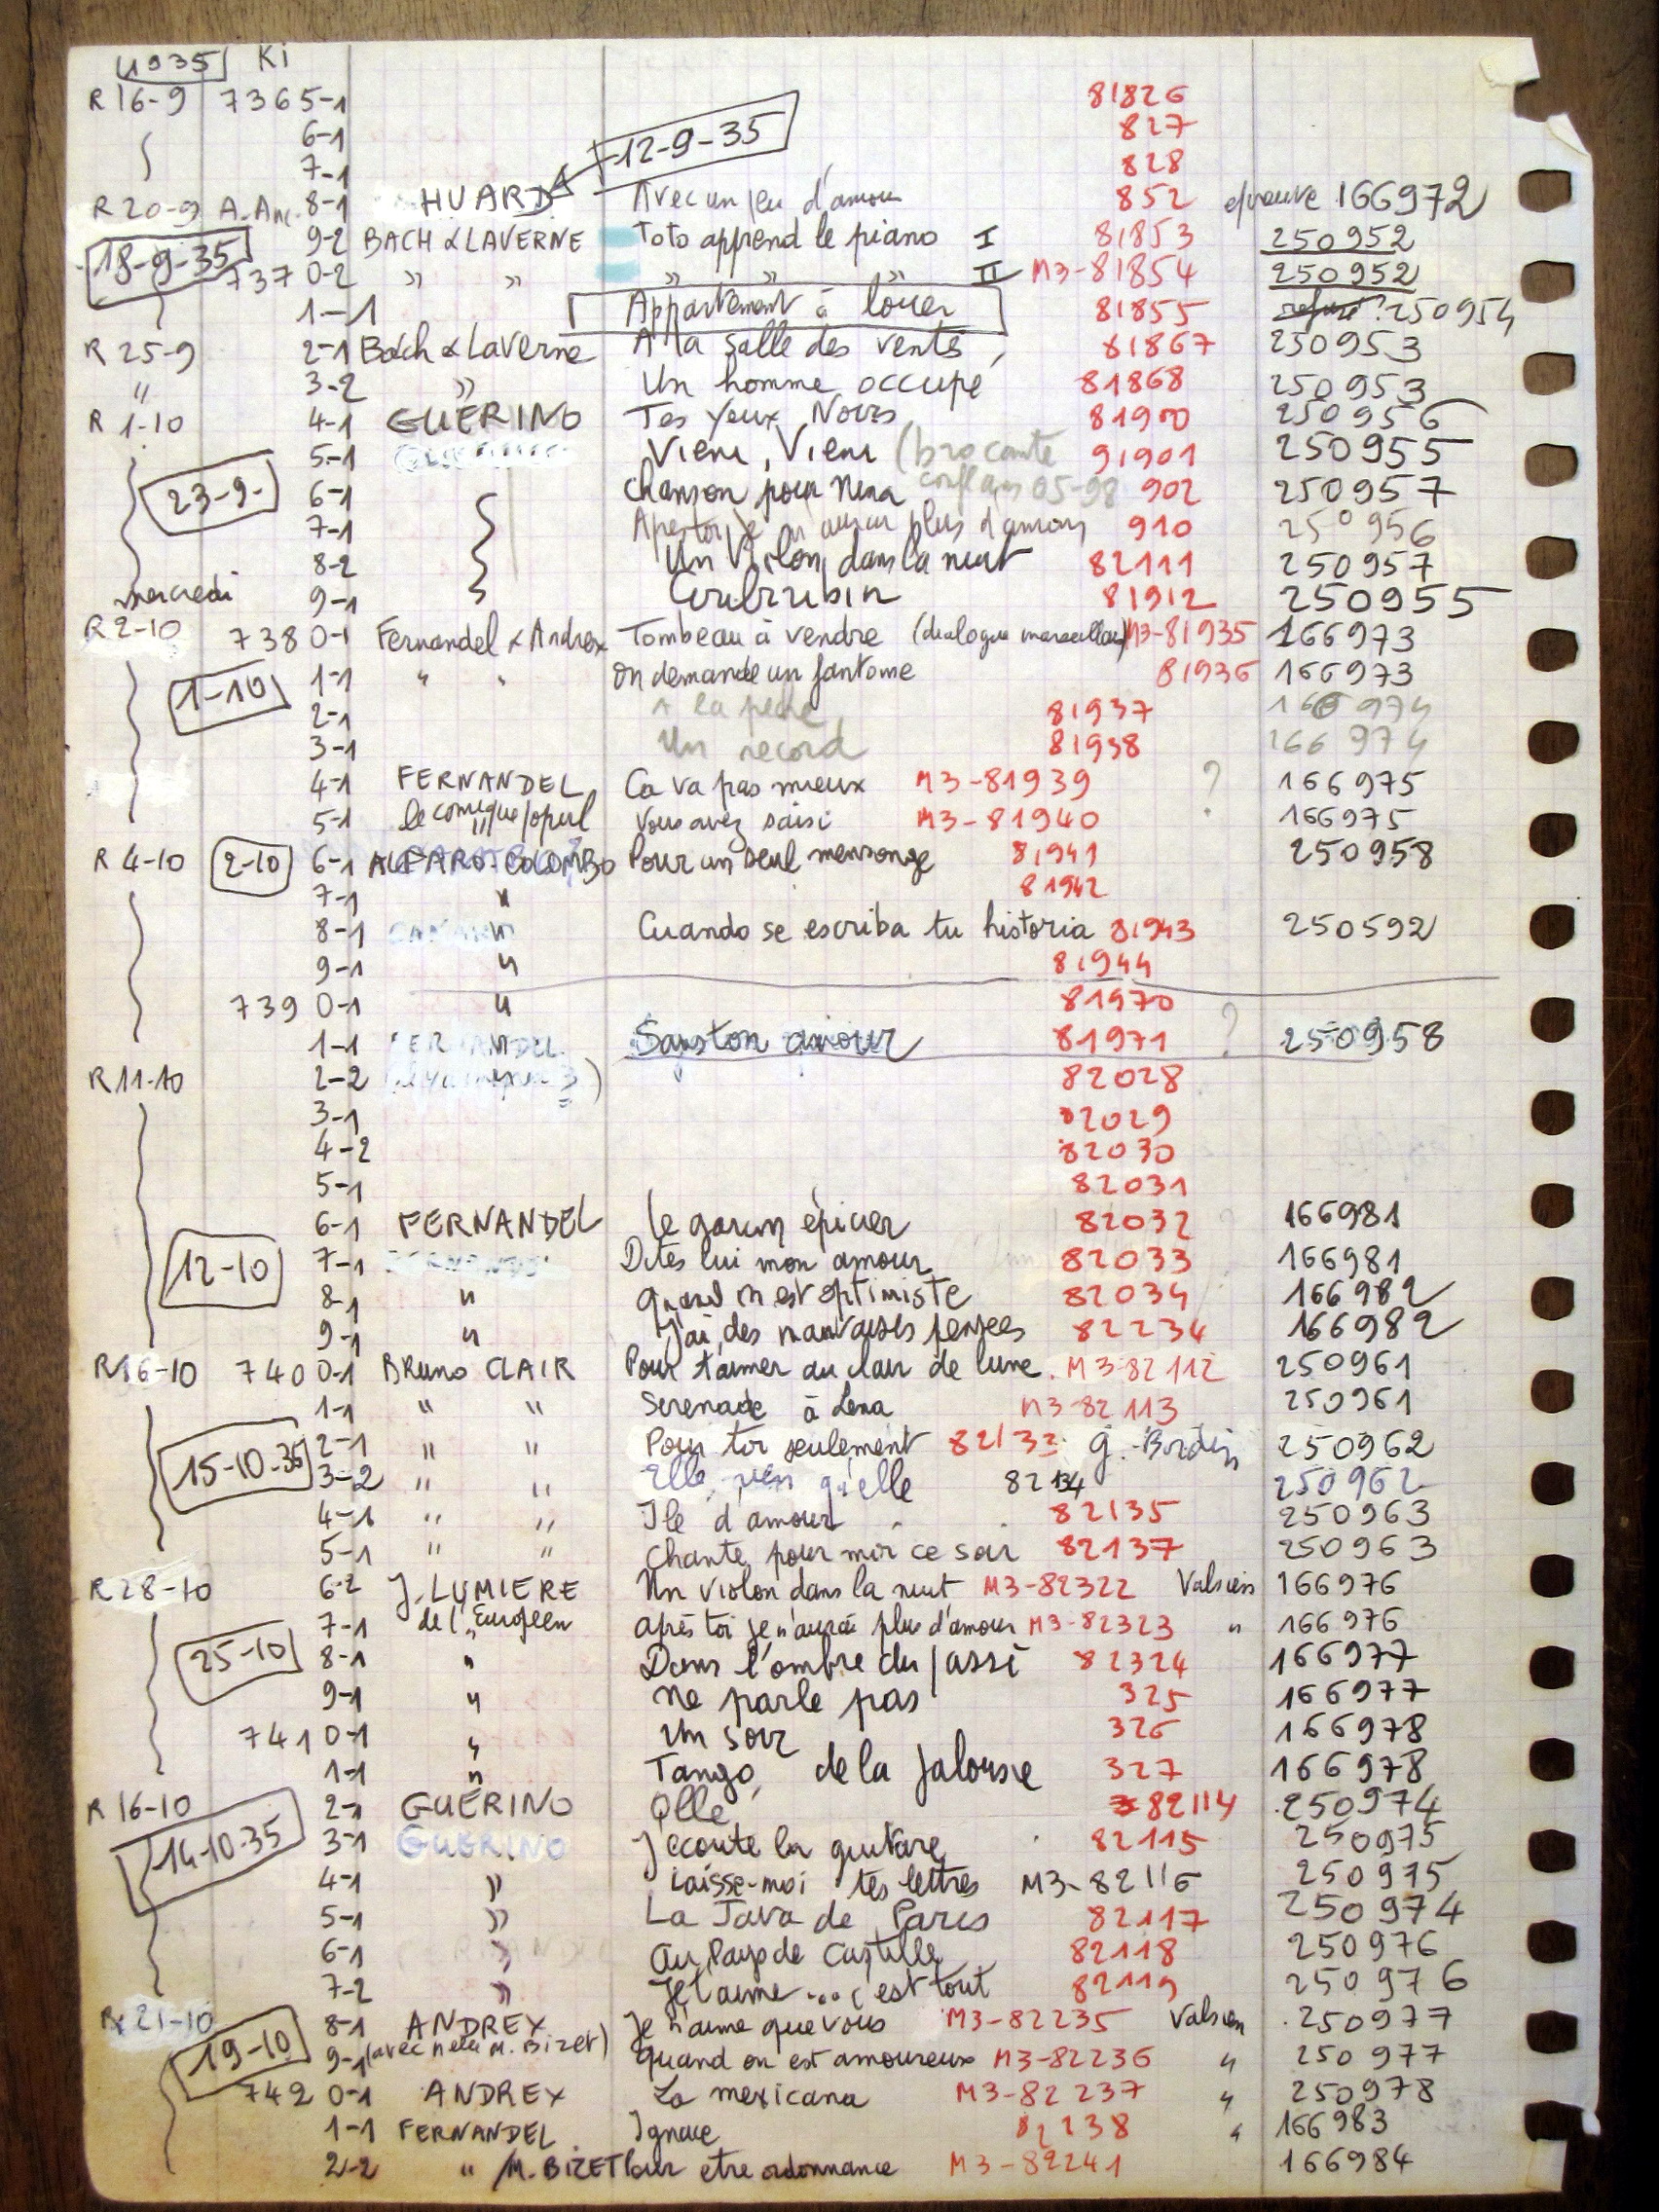 1935 Ki
R 16-9 7365-1 81826
6-1 827
12-9-35
7-1 828
R 20-9 A.Anc. 8-1 HUARD Avec un peu d'amour 852 épreuve 166972
9-2 BACH & LAVERNE Toto apprend le piano I 81853 250952
18-9-35
7370-2 " " " " " II M3-81854 250952
1-1 Appartement à louer 81855 refusé? 250954
R 25-9 2-1 Bach & Laverne A la salle des ventes 81867 250953
" 3-2 " Un homme occupé 81868 250953
R 1-10 4-1 GUERINO Tes Yeux Noirs 81900 250956
5-1 Vieni, Vieni (brocante 91901 250955
23-9-
6-1 Chanson pour Nina conflans 05-98 902 250957
7-1 plus d'amour 910 250956
8-2 Un Violon dans la nuit 82111 250957
mercredi 9-1 81912 250955
R 2-10 7380-1 Fernandel & Andrex Tombeau à vendre (dialogue marseillais) M3-81935 166973
1-1 " " On demande un fantome 81936 166973
1-10
2-1 A la peche 81937 166974
3-1 Un record 81938 166974
4-1 FERNANDEL Ca va pas mieux M3-81939 ? 166975
5-1 le comique popul Vous avez saisi M3-81940 ? 166975
R 4-10 2-10 6-1 ALFARO-COLOMBO Pour un seul mensonge 81941 250958
7-1 " 81942
8-1 " Cuando se escriba tu historia 81943 250592
9-1 " 81944
7390-1 " 81970
1-1 FERNANDEL Sans ton amour 81971 ? 250958
R 11-10 2-2 82028
3-1 82029
4-2 82030
5-1 82031
6-1 FERNANDEL le garçon épicier 82032 166981
12-10
7-1 Dites lui mon amour 82033 166981
8-1 " Quand on est optimiste 82034 166982
9-1 " J'ai des mauvaises pensees 82234 166982
R16-10 7400-1 Bruno CLAIR Pour t'aimer au clair de lune. M3-82112 250961
1-1 " " Serenade à Lena M3-82113 250961
2-1 " " Pour toi seulement 82133 G. Bordin 250962
15-10-35
3-2 " " Elle, rien qu'elle 82134 250962
4-1 " " Ile d'amour 82135 250963
5-1 " " Chante pour moi ce soir 82137 250963
R 28-10 6-2 J. LUMIERE Un violon dans la nuit M3-82322 Valsien 166976
7-1 de l'Européen après toi je n'aurai plus d'amour M3-82323 " 166976
25-10
8-1 " Dans l'ombre du passé 82324 166977
9-1 " ne parle pas 325 166977
7410-1 " Un soir 326 166978
1-1 " Tango de la jalousie 327 166978
R 16-10 2-1 GUÉRINO Olle 82114 250974
14-10-35
3-1 GUERINO J'ecoute la guitare 82115 250975
4-1 " Laisse-moi tes lettres M3-82116 250975
5-1 " La Java de Paris 82117 250974
6-1 " Au Pays de Castille 82118 250976
7-2 " Je t'aime... c'est tout 82119 250976
R 21-10 8-1 ANDREX Je n'aime que vous M3-82235 Valsien 250977
19-10
9-1 (avec Melle M. Bizet) Quand on est amoureux M3-82236 " 250977
7420-1 ANDREX La mexicana M3-82237 " 250978
1-1 FERNANDEL Ignace 82238 " 166983
2-2 " /M. BIZET Pour etre ordonnance M3-82241 166984